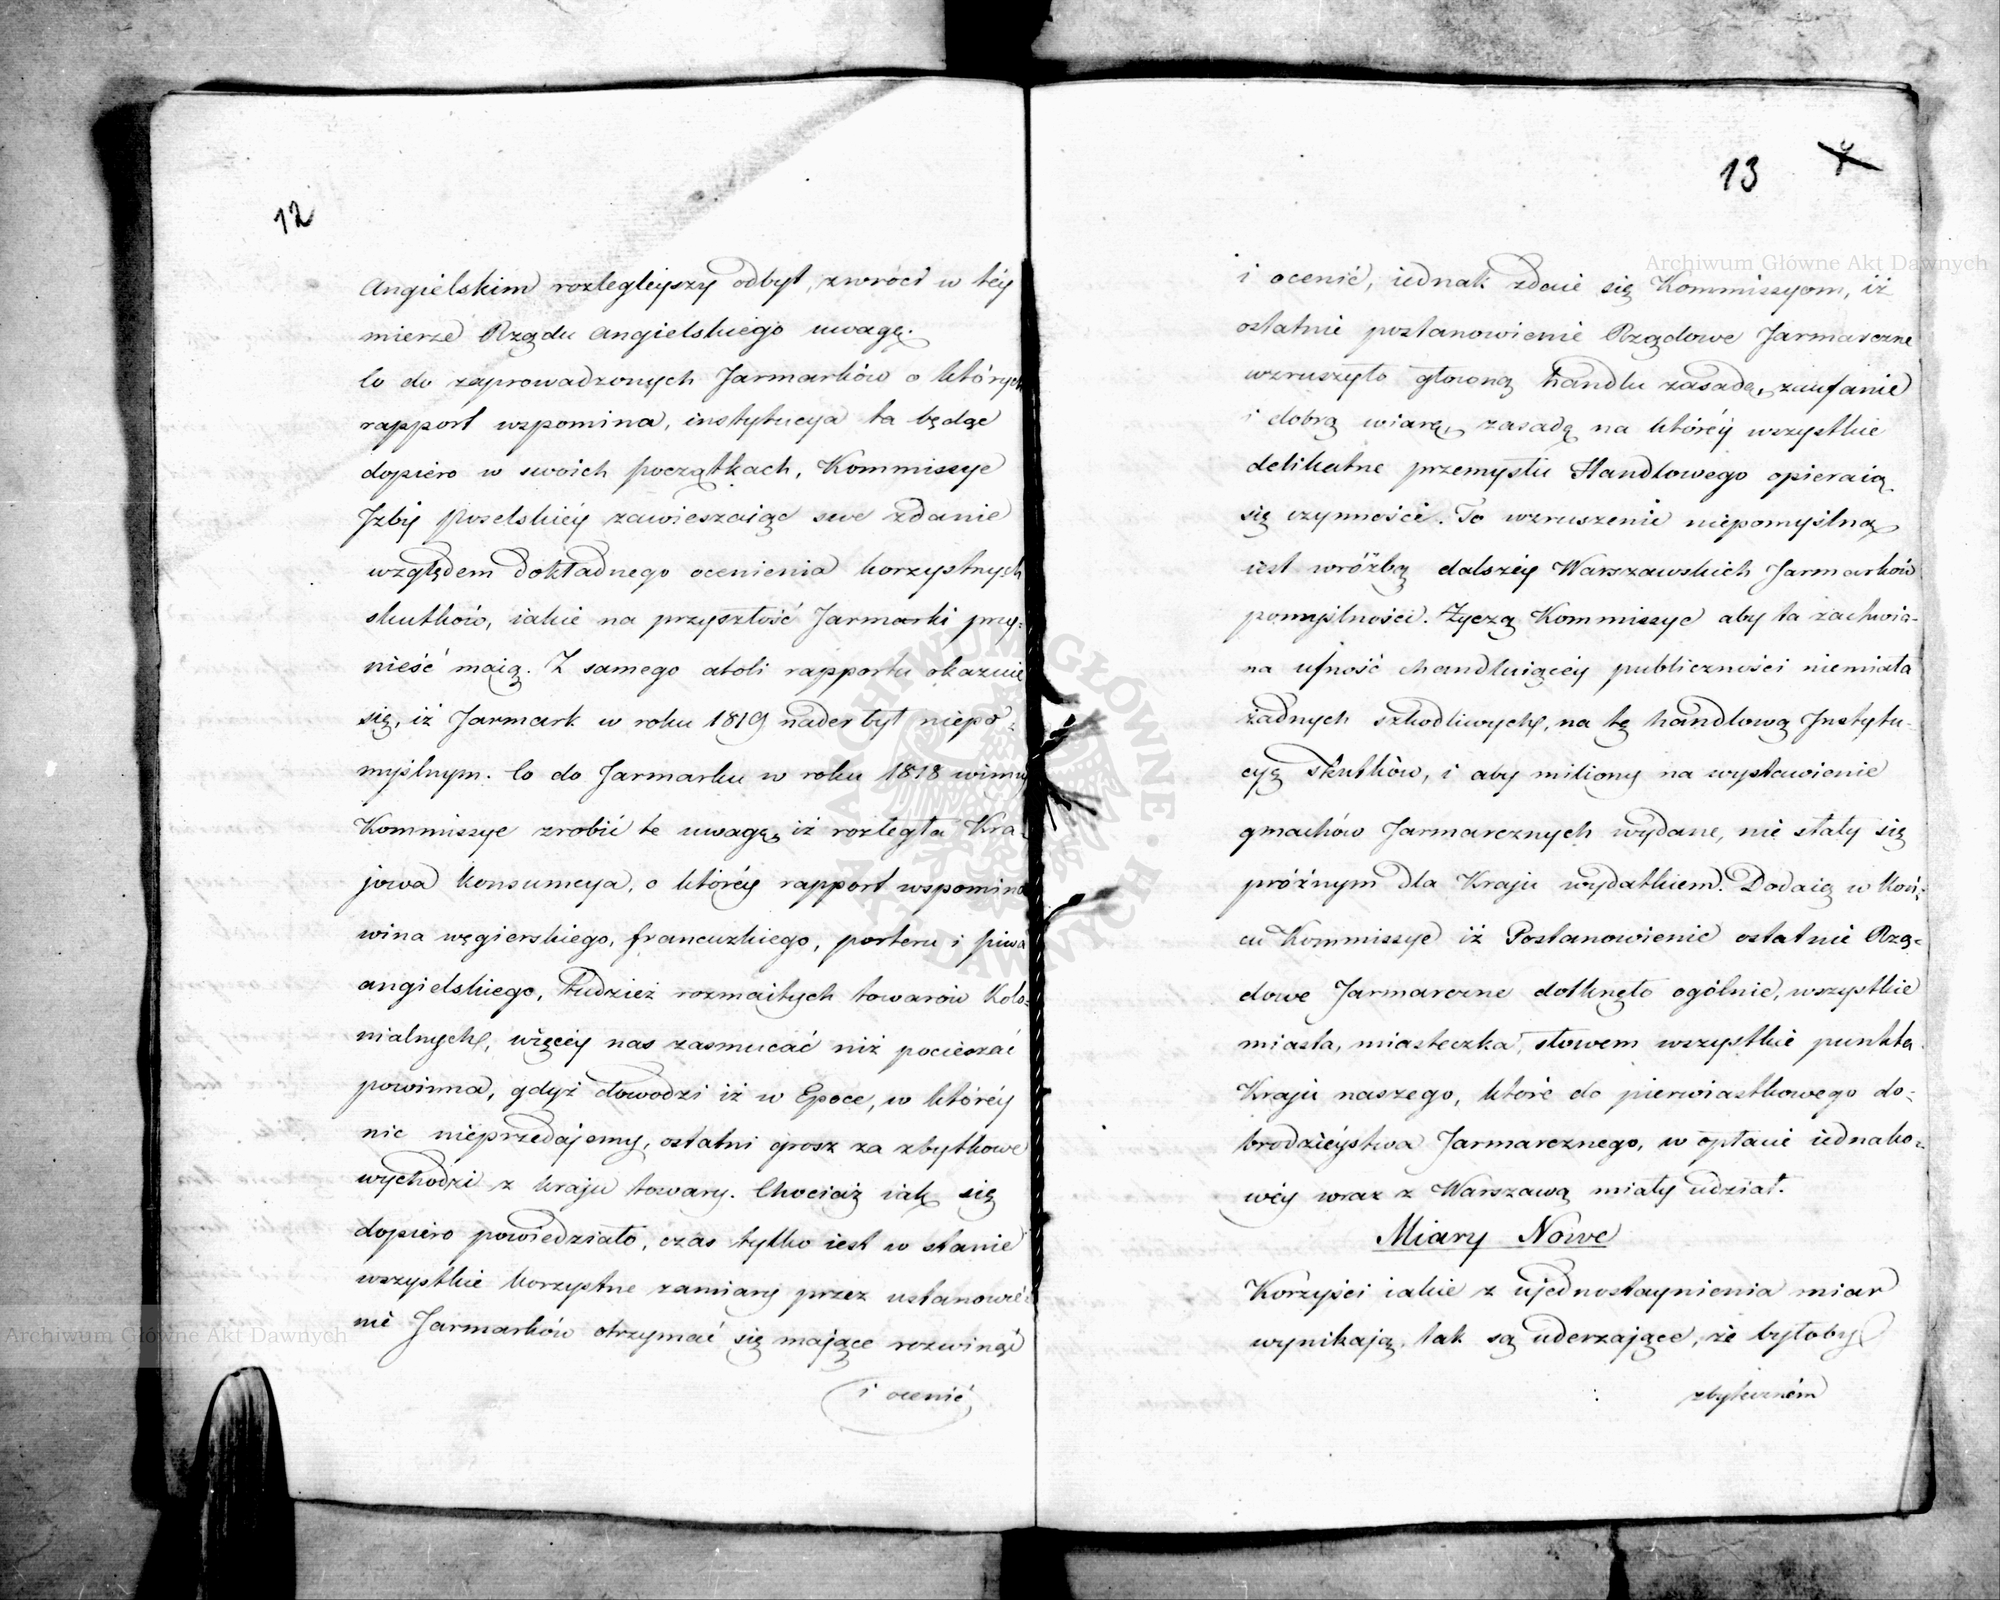 12
Angielskim rozlegleyszy odbyt, zwróci w téy
mierze Rządu Angielskiego uwagę.
Co do zaprowadzonych Jarmarków o których
rapport wspomina, instytucya ta będąc
dopiero w swoich początkach, Kommissye
Izby poselskiéy zawieszaiąc swe zdanie
względem dokładnego ocenienia korzystnych
skutków, iakie na przyszłość Jarmarki przy-
nieść maią. Z samego atoli rapportu okazuie
się, iż Jarmark w roku 1819 nader był niepo-
myślnym. Co do Jarmarku w roku 1818 winny
Kommissye zrobić te uwagę, iż rozległa Kra-
jowa konsumcya, o któréy rapport wspomina
wina węgierskiego, francuzkiego, porteru i piwa
angielskiego, tudzież rozmaitych towarów Kolo-
nialnych, więcéy nas zasmucać niż pocieszać
powinna, gdyż dowodzi iż w Epoce, w któréy
nic nieprzedajemy, ostatni grosz za zbytkowe
wychodzi z kraju towary. Chociaż iak się
dopiero powiedziało, czas tylko iest w stanie
wszystkie korzystne zamiary przez ustanowie
nie Jarmarków otrzymać się mające rozwinąć
i ocenić
13
i ocenić, iednak zdaie się Kommissyom, iż
ostatnie postanowienie Rządowe Jarmarczne
wzruszyło głowną handlu zasadę, zaufanie
i dobrą wiarę, zasadę na któréy wszystkie
delikatne przemysłu Handlowego opieraią
się czynności. To wzruszenie niepomyślną
iest wróżbą dalszéy Warszawskich Jarmarków
pomyślności. Życzą Kommissye aby ta zachwia-
na ufność handluiącéy publiczności niemiała
żadnych szkodliwych, na tę handlową Instytu-
cyą skutków, i aby miliony na wystawienie
gmachów Jarmarcznych wydane, nie stały się
próżnym dla Kraju wydatkiem. Dodaią w Koń-
cu Kommissye iż Postanowienie ostatnie Rzą-
dowe Jarmarczne dotknęło ogólnie, wszystkie
miasta, miasteczka, słowem wszystkie punkta
Kraju naszego, które do pierwiastkowego do-
brodzieystwa Jarmarcznego, w opłacie iednako-
wéy wraz z Warszawą miały udział.
Miary Nowe
Korzyści iakie z ujednostaynienia miar
wynikają, tak są uderzające, że byłoby
zbyteczném
Archiwum Główne Akt Dawnych
Archiwum Główne Akt Dawnych
ARCHIWUM GŁÓWNE AKT DAWNYCH